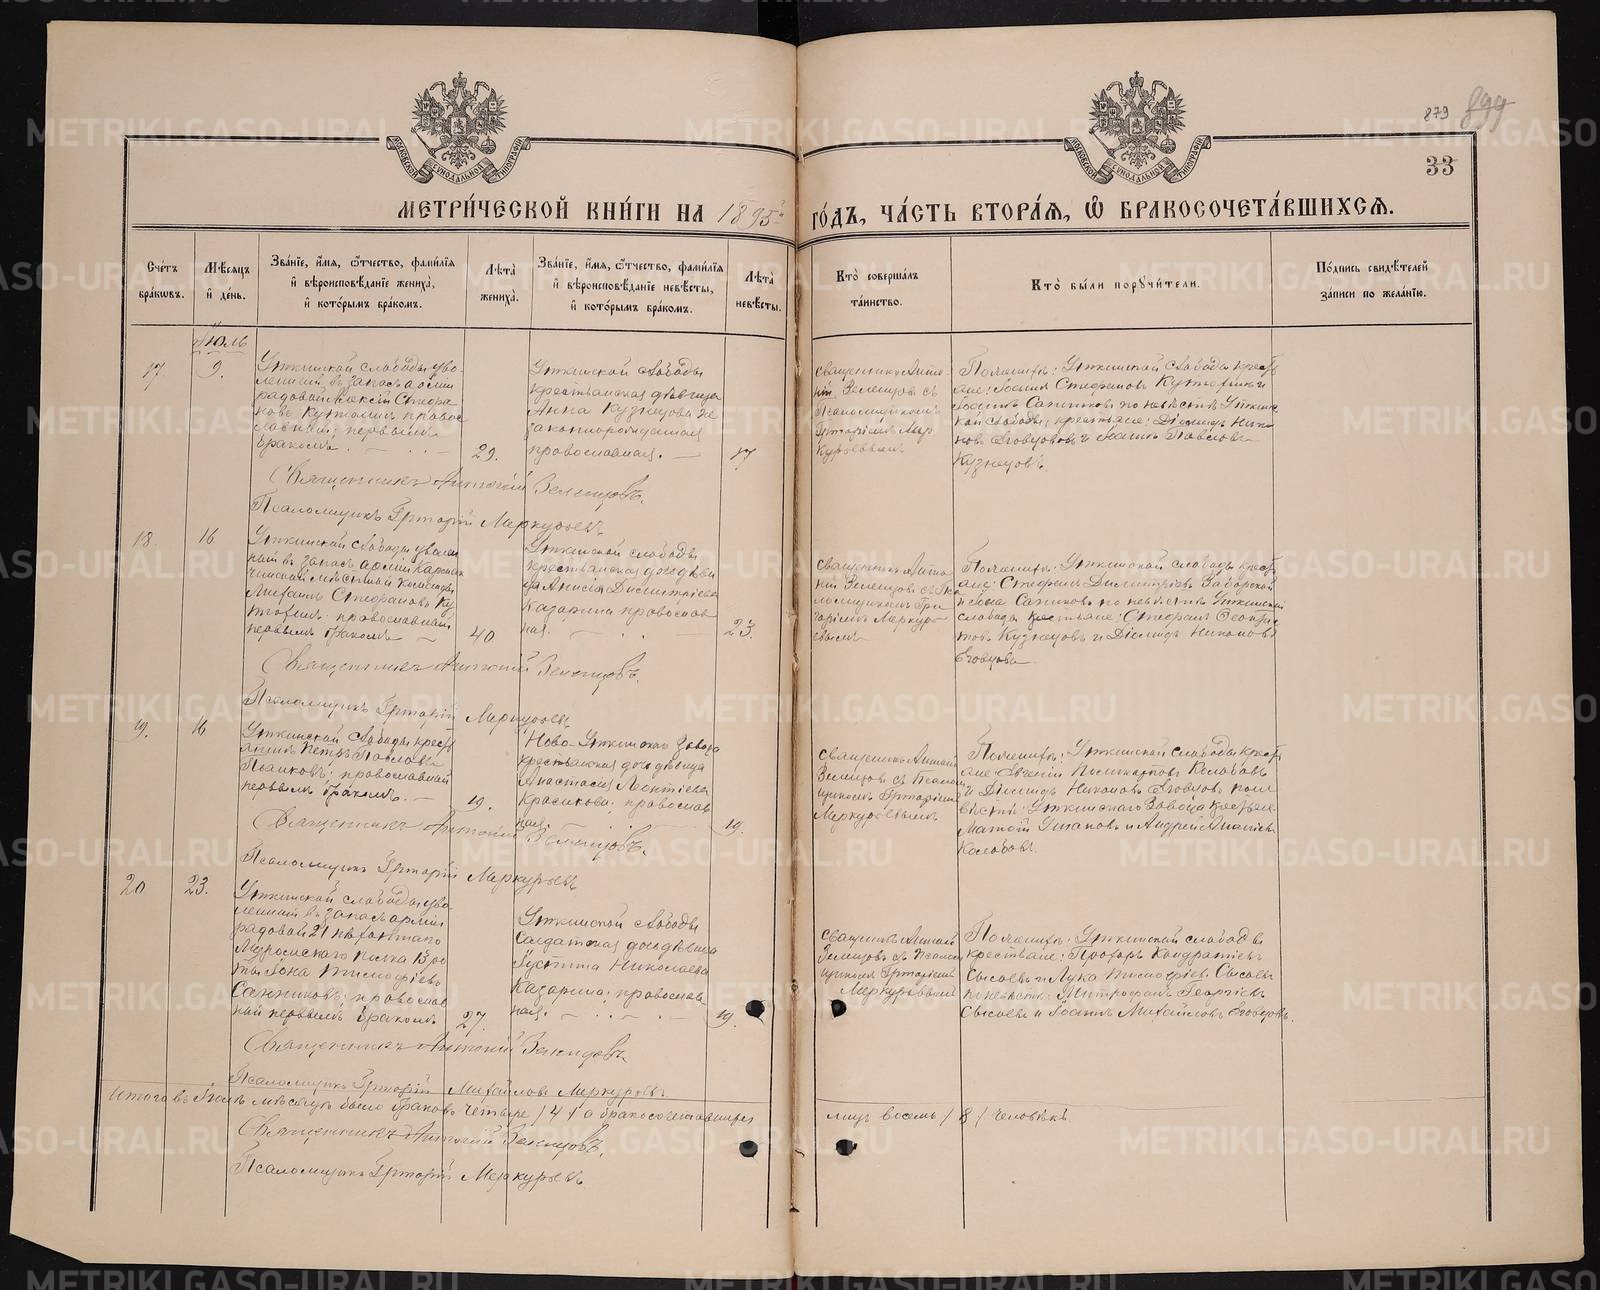 879 899
33
МОСКОВСКОЙ СѴНОДАЛЬНОЙ ТИПОГРАФІИ
МОСКОВСКОЙ СѴНОДАЛЬНОЙ ТИПОГРАФІИ
МЕТРИ́ЧЕСКОЙ КНИ́ГИ НА 1895 ГО́ДЪ, ЧА́СТЬ ВТОРА́Я, Ѿ БРАКОСОЧЕТА́ВШИХСЯ.
Сче́тъ бра́ковъ.
Мѣ́сяцъ и҆ де́нь.
Зва́нїе, и҆́мя, ѻ҆́тчество, фами́лїя и҆ вѣроисповѣ́данїе жениха̀, и҆ кото́рымъ бра́комъ.
Лѣта̀ жениха̀.
Зва́нїе, и҆́мя, ѻ҆́тчество, фами́лїя и҆ вѣроисповѣ́данїе невѣ́сты, и҆ кото́рымъ бра́комъ.
Лѣта̀ невѣ́сты.
Кто̀ соверша́лъ та́инство.
Кто̀ бы́ли порꙋчи́тели.
По́дпись свидѣ́телей за́писи по жела́нїю.
Іюль
17. 9.
Уткинской слободы уво-
ленный въ запасъ арміи
рядовой Алексій Стефа-
новъ православ-
ный; первымъ
бракомъ.
29.
Уткинской слободы
крестьянская дѣвица
Анна Кузнецова не
законнорожденная
православная.
17
священникъ Анто-
ній Зеленцовъ съ
Псаломщикомъ
Григоріемъ Мер
курьевымъ
Поженихѣ: Уткинской слободы крест
яне: Іоаннъ Стефановъ и
Іоаннъ по невѣстѣ Уткинс
кой слободы крестьяне: Діомидъ Нико
новъ и Іоаннъ Павловъ
Кузнецовъ
Священникъ Антоній Зеленцовъ.
Псаломщикъ Григорій Меркурьевъ
18. 16
Уткинской слободы уволен
ный въ запасъ арміи
мѣстной команды
Михаилъ Стефановъ
православный
первымъ бракомъ
40
Уткинской слободы
крестьянская дочь дѣви
ца Анисія Димитріева
Казарина православ
ная.
23.
священникъ Анто
ній Зеленцовъ съ Пса
ломщикомъ Гри
горіемъ Меркурь
евымъ
Поженихѣ: Уткинской слободы крест
яне: Стефанъ Димитріевъ
и Іона по невѣстѣ Уткинской
слободы крестьяне: Стефанъ
Кузнецовъ и Діомидъ Никоновъ
Священникъ Антоній Зеленцовъ.
Псаломщикъ Григорій Меркурьевъ
19. 16
Уткинской слободы крест
янинъ Петръ Павловъ
православный
первымъ бракомъ.
19.
Ново-Уткинскаго завода
крестьянская дочь дѣвица
Анастасія Леонтіева
Красикова; православ
ная.
19.
священникъ Антоній
Зеленцовъ съ Псалом
щикомъ Григоріемъ
Меркурьевымъ
Поженихѣ: Уткинской слободы крест
яне Евгеній Поликарповъ Колобовъ
и Діомидъ Никоновъ по не
вѣстѣ: Уткинскаго завода крестьяне
Матфій Ушаковъ и Андрей
Колобовъ
Священникъ Антоній Зеленцовъ.
Псаломщикъ Григорій Меркурьевъ
20 23.
Уткинской слободы уво-
ленный въ запасъ арміи
рядовой 21 пѣхотнаго
Муромскаго полка 13 ро
ты Іона Тимофіевъ
Санниковъ; православ
ный первымъ бракомъ
27.
Уткинской слободы
Солдатская дочь дѣвица
Іустина Николаева
Казарина; православ
ная.
19.
священникъ Антоній
Зеленцовъ съ Псалом
щикомъ Григоріемъ
Меркурьевымъ
Поженихѣ: Уткинской слободы
крестьяне: Прохоръ Кондратіевъ
Сысоевъ и Лука Тимофіевъ Сысоевъ
по невѣстѣ: Митрофанъ Георгіевъ
Сысоевъ и Іоаннъ Михайловъ
Священникъ Антоній Зеленцовъ
Псаломщикъ Григорій Михайловъ Меркурьевъ
Итого въ Іюлѣ мѣсяцѣ было браковъ четыре /4/ а бракосочетавшихся лицъ восемь /8/ человѣкъ
Священникъ Антоній Зеленцовъ.
Псаломщикъ Григорій Меркурьевъ
METRIKI.GASO-URAL.RU